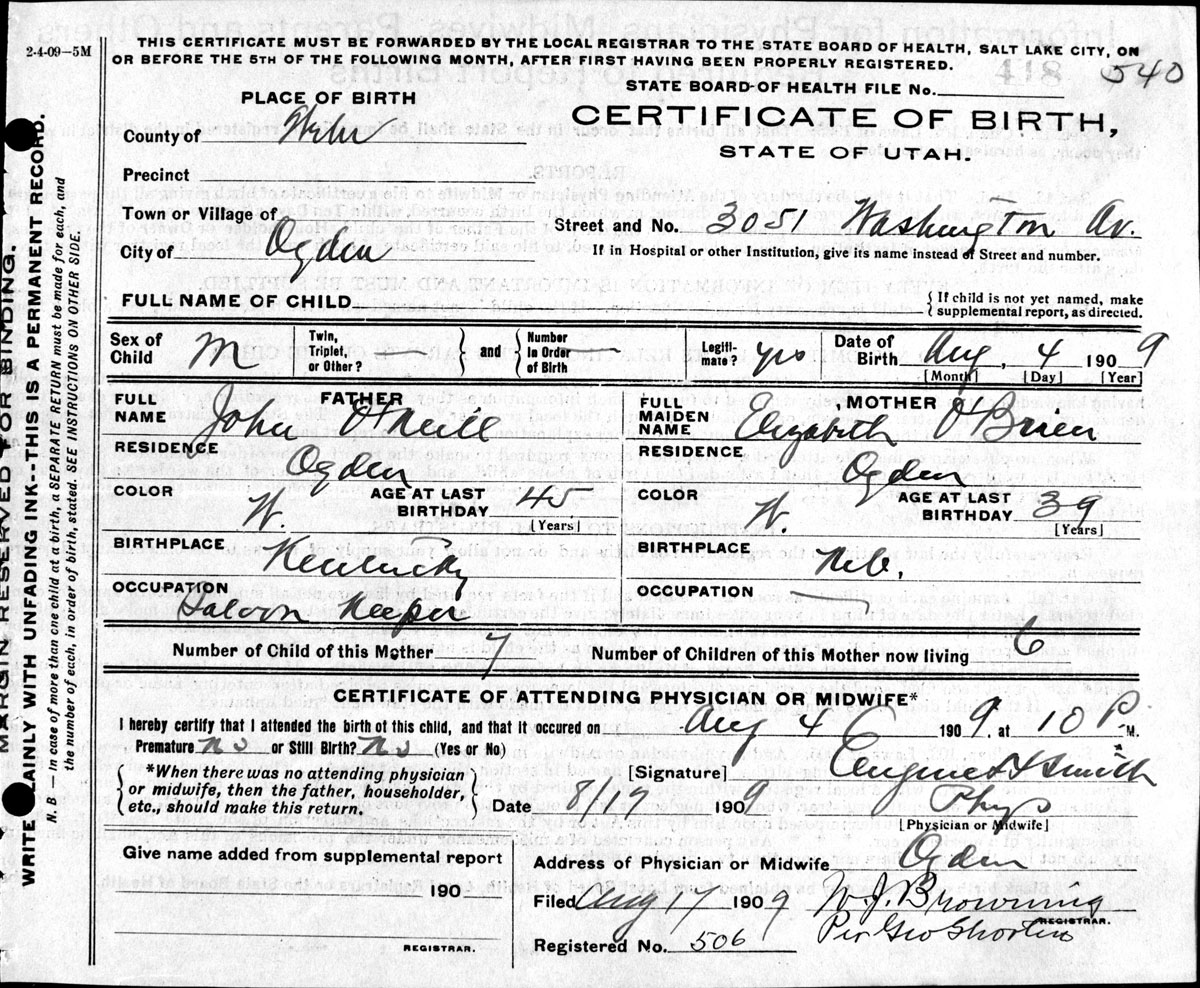 2-4-09—5M
THIS CERTIFICATE MUST BE FORWARDED BY THE LOCAL REGISTRAR TO THE STATE BOARD OF HEALTH, SALT LAKE CITY, ON
OR BEFORE THE 5TH OF THE FOLLOWING MONTH, AFTER FIRST HAVING BEEN PROPERLY REGISTERED.
418
540
STATE BOARD OF HEALTH FILE No.
PLACE OF BIRTH
CERTIFICATE OF BIRTH,
STATE OF UTAH.
County of Weber
Precinct
Town or Village of
Street and No. 3051 Washington Av.
City of Ogden
If in Hospital or other Institution, give its name instead of Street and number.
FULL NAME OF CHILD
{ If child is not yet named, make
supplemental report, as directed.
Sex of Child M
Twin, Triplet, or Other?
} and {
Number In Order of Birth
Legiti-mate? yes
Date of Birth Aug 4 1909
[Month] [Day] [Year]
FATHER
FULL NAME John O'Neill
MOTHER
FULL MAIDEN NAME Elizabeth O'Brien
RESIDENCE Ogden
RESIDENCE Ogden
COLOR W.
AGE AT LAST BIRTHDAY 45
[Years]
COLOR W.
AGE AT LAST BIRTHDAY 39
[Years]
BIRTHPLACE Kentucky
BIRTHPLACE Neb.
OCCUPATION Saloon Keeper
OCCUPATION
Number of Child of this Mother 7
Number of Children of this Mother now living 6
CERTIFICATE OF ATTENDING PHYSICIAN OR MIDWIFE*
I hereby certify that I attended the birth of this child, and that it occured on Aug 4 1909, at 10 P M.
Premature No or Still Birth? No (Yes or No)
{ *When there was no attending physician
or midwife, then the father, householder,
etc., should make this return. }
[Signature] Smith
Date 8/7 1909
Phys
[Physician or Midwife]
Give name added from supplemental report
190
REGISTRAR.
Address of Physician or Midwife Ogden
Filed Aug 17 1909 W. J. Browning
REGISTRAR.
Registered No. 506
Per Geo Shorten
MARGIN RESERVED FOR BINDING.
WRITE PLAINLY WITH UNFADING INK--THIS IS A PERMANENT RECORD.
N. B — In case of more than one child at a birth, a SEPARATE RETURN must be made for each, and
the number of each, in order of birth, stated. SEE INSTRUCTIONS ON OTHER SIDE.